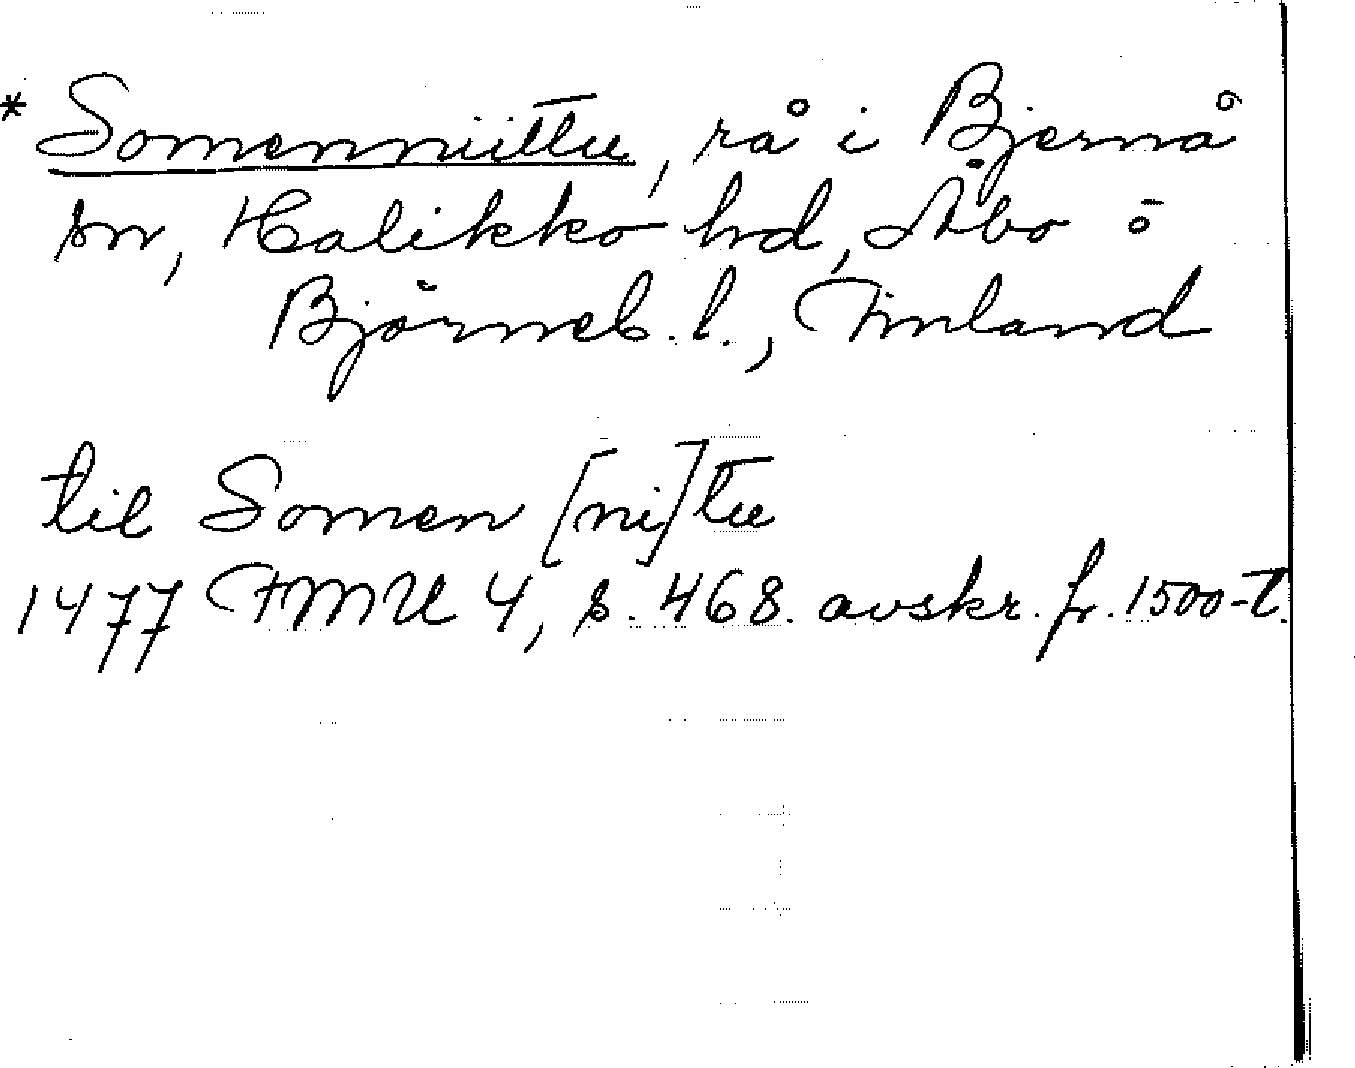 *Somenniittu, rå i Bjernå
sn, Halikko hd, Åbo o
Björneb. l., Finland
til Somen [ni]tu
1477 FMU 4, s. 468. avskr. fr. 1500-t.